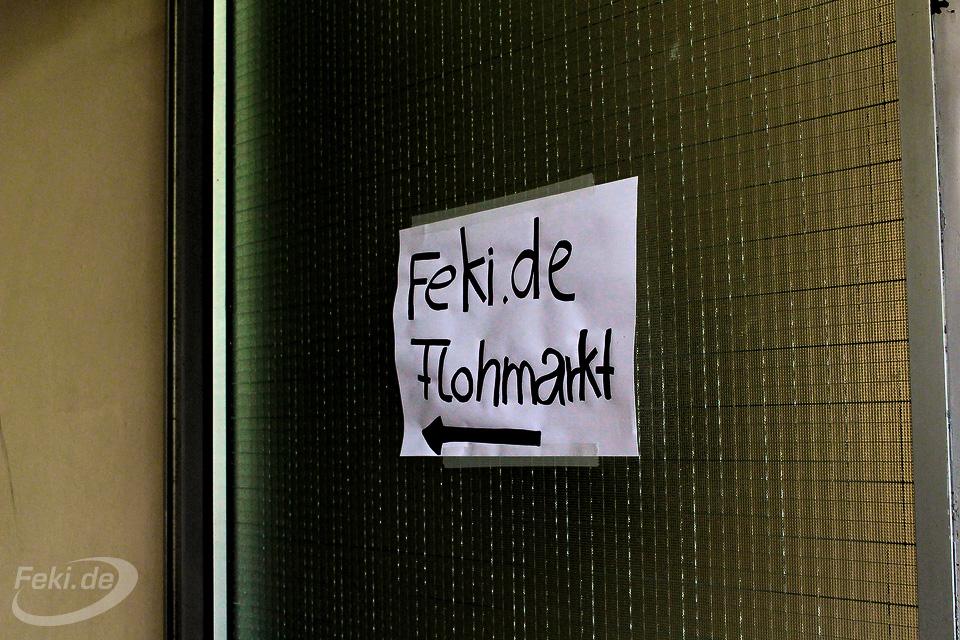 Feki.de
Flohmarkt
Feki.de